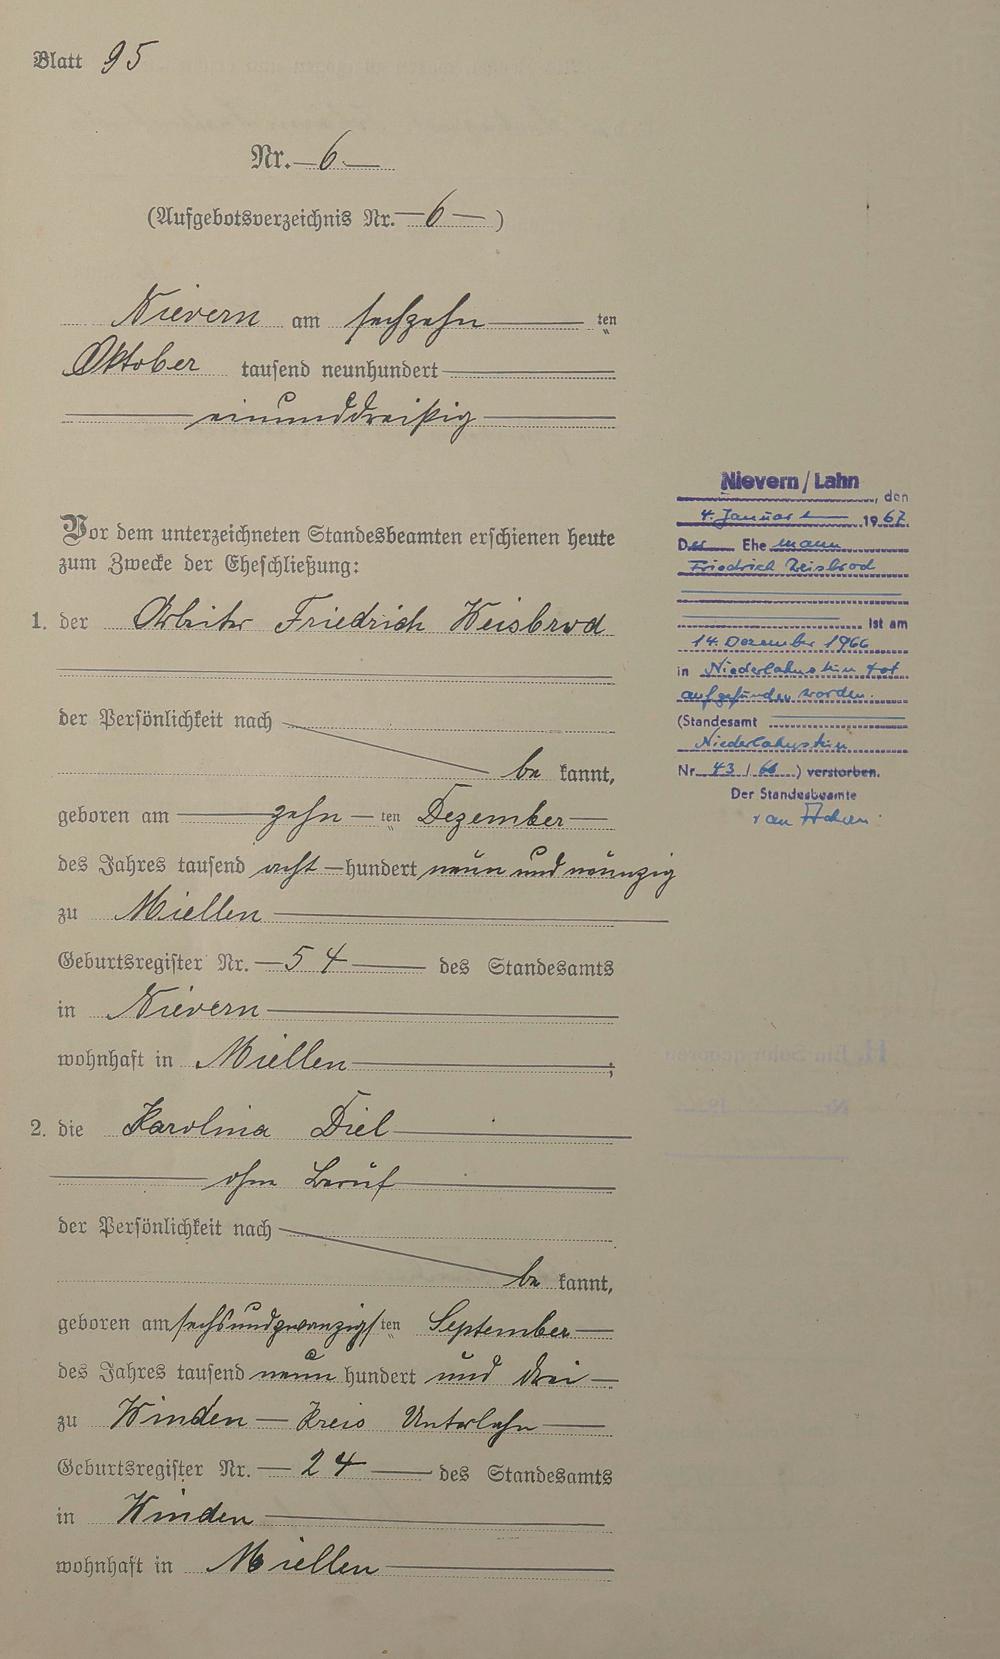 Blatt 95
Nr. 6
(Aufgebotsverzeichnis Nr. 6)
Nievern am sechzehn ten
Oktober tausend neunhundert
einunddreißig
Vor dem unterzeichneten Standesbeamten erschienen heute
zum Zwecke der Eheschließung:
1. der Arbeiter Friedrich Weisbrod
der Persönlichkeit nach
be kannt,
geboren am zehn ten Dezember
des Jahres tausend acht hundert neun und neunzig
zu Miellen
Geburtsregister Nr. 54 des Standesamts
in Nievern
wohnhaft in Miellen ;
2. die Karolina Diel
ohne Beruf
der Persönlichkeit nach
be kannt,
geboren am sechsundzwanzigsten September
des Jahres tausend neun hundert und drei
zu Winden Kreis Unterlahn
Geburtsregister Nr. 24 des Standesamts
in Winden
wohnhaft in Miellen
Nievern/Lahn
, den
4. Januar 1967
Der Ehe mann
Friedrich Weisbrod
ist am
14. Dezember 1966
in Niederlahnstein tot
aufgefunden worden.
(Standesamt
Niederlahnstein
Nr. 43 / 66) verstorben.
Der Standesbeamte